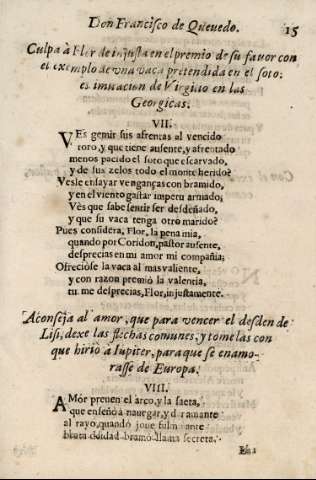 Don Francisco de Quevedo. 15
Culpa à Flor de injusta en el premio de su favor con
el exemplo de vna vaca pretendida en el soto;
es imitacion de Virgilio en las
Georgicas.
VII.
VEs gemir sus afrentas al vencido
toro, y que tiene ausente, y afrentado
menos pacido el soto que escarvado,
y de sus zelos todo el monte herido?
Vesle ensayar venganças con bramido,
y en el viento gastar impetu armado;
Vès que sabe sentir ser desdeñado,
y que su vaca tenga otro marido?
Pues considera, Flor, la pena mia,
quando por Coridon, pastor ausente,
desprecias en mi amor mi compañia;
Ofreciòse la vaca al mas valiente,
y con razon premiò la valentia,
tu me desprecias, Flor, injustamente.
Aconseja al amor, que para vencer el desden de
Lisi, dexe las flechas comunes, y tome las con
que hirio à Iupiter, para que se enamo-
rasse de Europa.
VIII.
AMòr preuen el arco, y la saeta,
que enseñò a nauegar, y dar amante
al rayo, quando joue fulminante
bruta deidad bramò llama secreta.